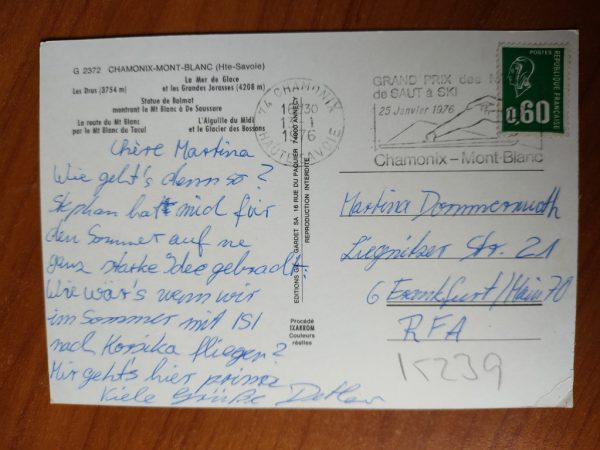 G 2372 CHAMONIX-MONT-BLANC (Hte-Savoie)
La Mer de Glace
Les Drus (3754 m) et les Grandes Jorasses (4208 m)
Statue de Balmat
montrant le Mt Blanc à De Saussure
La route du Mt Blanc L'Aiguille du Midi
par le Mt Blanc du Tacul et le Glacier des Bossons
Chère Martina
Wie geht's denn so?
Stephan hat mich für
den Sommer auf ne
ganz starke Idee gebracht:
Wie wär's wenn wir
im Sommer mit ISI
nach Korsika fliegen?
Mir geht's hier prima
Viele Grüße Detlev
EDITIONS GARDET SA 16 RUE DU PAQUIER 74000 ANNECY
REPRODUCTION INTERDITE
Procédé
IXARROM
Couleurs
réelles
74 CHAMONIX
30
HAUTE SAVOIE
GRAND PRIX des
de SAUT à SKI
25 Janvier 1976
Chamonix-Mont-Blanc
REPUBLIQUE FRANÇAISE
0,60
Martina Dommermuth
Liegnitzer Str. 21
6 Frankfurt/Main 70
RFA
15239